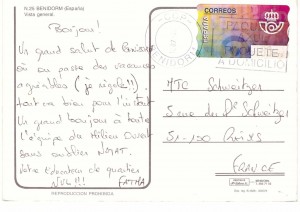 N-25 BENIDORM (España)
Bonjour!
Un grand salut de Benidorm
où on passe des vacances
agréables (je rigole!!)
tout va bien pour l'instant
Un grand bonjour à toute
l'équipe du
sans oublier
Votre de quartier
FATMA
REPRODUCCION PROHIBIDA
CORREOS
ESPAÑA
BENIDORM
PAQUETE
A DOMICILIO
MTC Schweitzer
5 rue du Dr Schweitzer
51-100 Reims
FRANCE